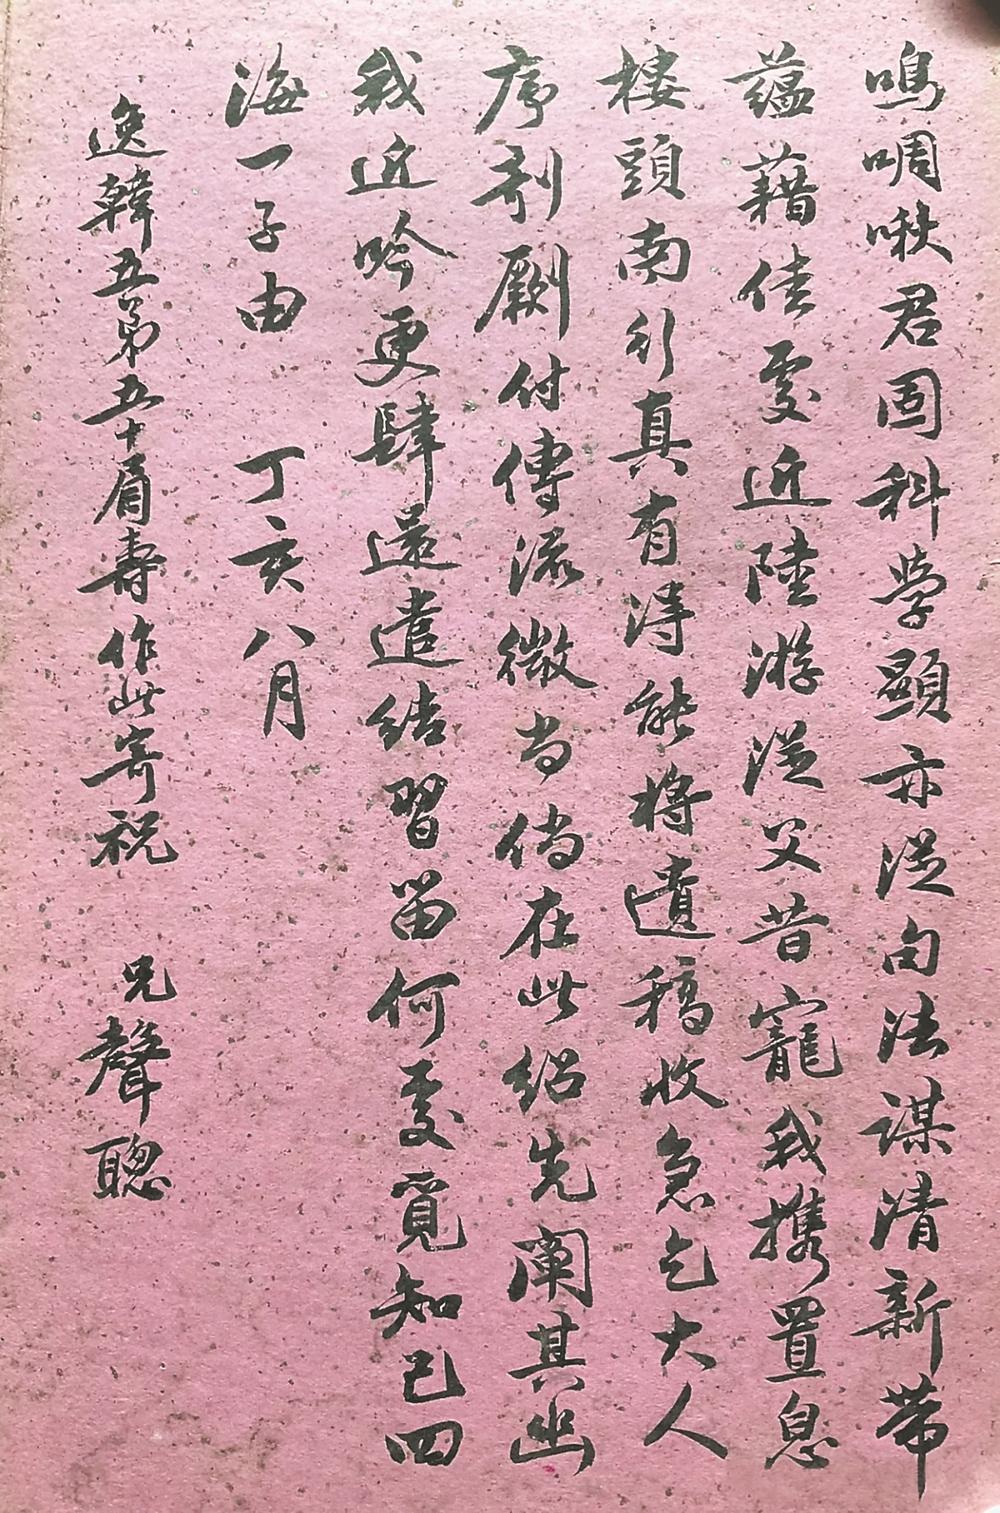 鳴啁啾君固科學顯亦從句法謀清新帶
蘊藉佳處近陸游從父昔寵我攜置息
樓頭南行真有得能將遺稿收急乞大人
序剞劂付傳流微尚倘在此紹先闡其幽
我近吟更肆還遣結習留何處覓知己四
海一子由　丁亥八月
逸韓五弟五十眉壽作此寄祝　兄聲聰